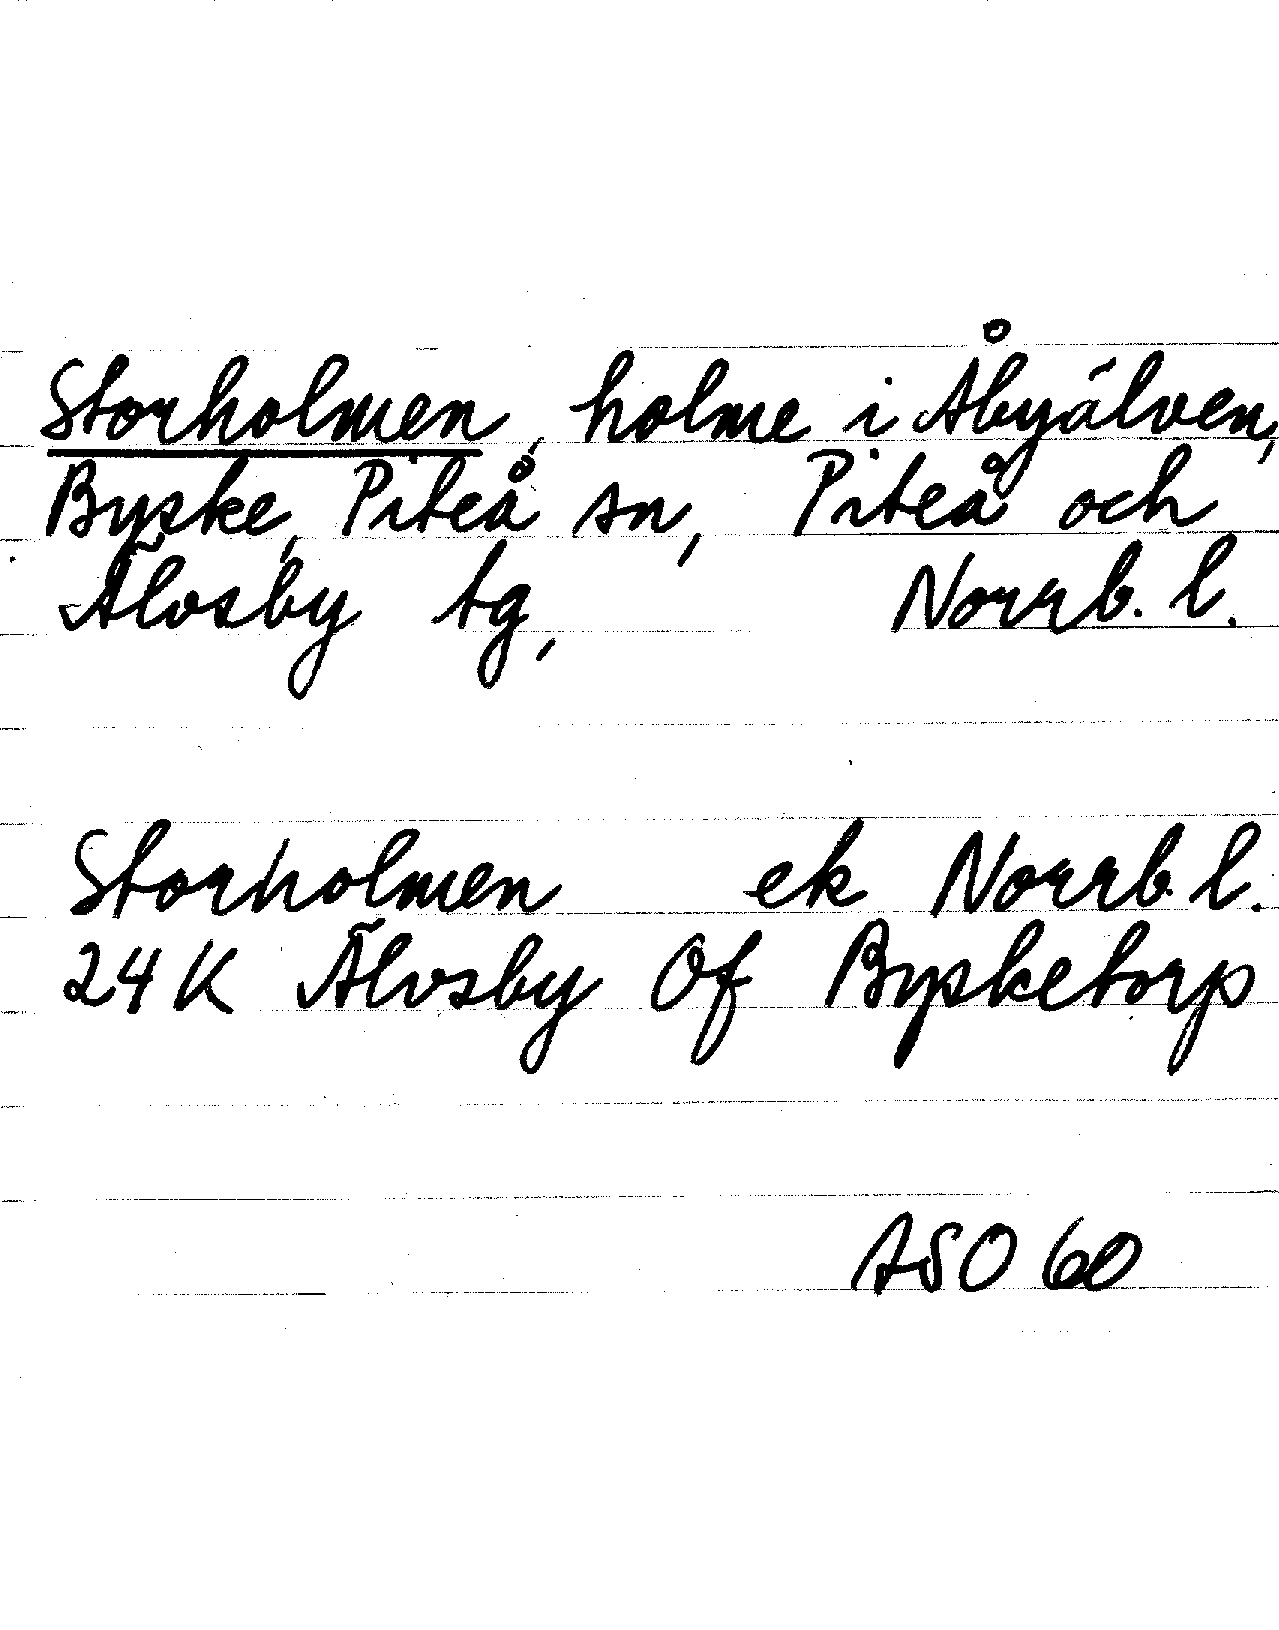 Storholmen, holme i Åbyälven,
Byske, Piteå sn, Piteå och
Älvsby tg, Norrb. l.
Storholmen ek Norrb. l.
24K Älvsby Of Bysketorp
ASO 60